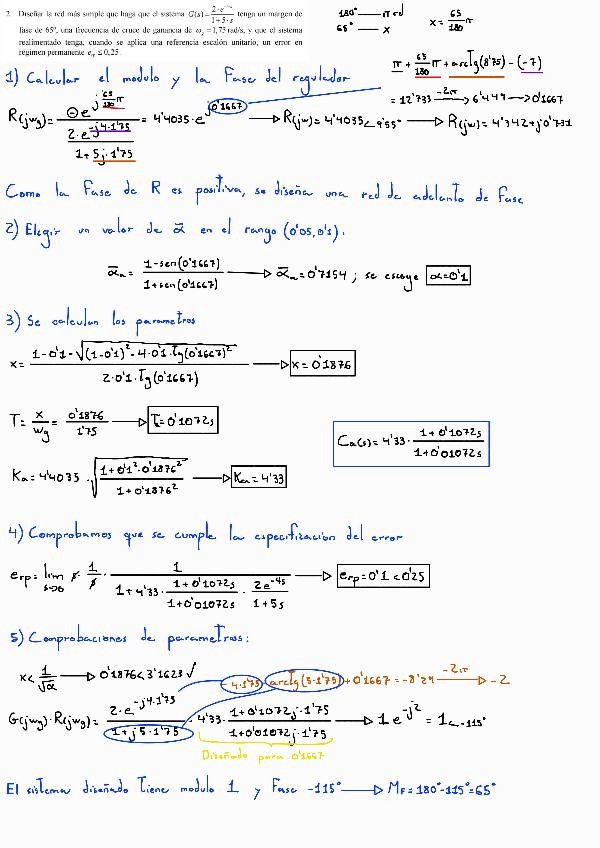 2. Diseñar la red más simple que haga que el sistema G(s) = 2·e^-4s / 1+5·s tenga un margen de
fase de 65º, una frecuencia de cruce de ganancia de ω_g = 1,75 rad/s, y que el sistema
realimentado tenga, cuando se aplica una referencia escalón unitario, un error en
régimen permanente e_rp ≤ 0,25.
180° — π rd
65° — x
x = 65/180 π
1) Calcular el modulo y la Fase del regulador
π + 65/180 π + arctg(8'75) - (-7)
= 12'733 —-2π→ 6'449 → 0'1667
R(jwg) = ⊖e^(j 65/180 π) / (2·e^(-j4·1'75) / 1+5j·1'75) = 4'4035·e^(j0'1667) → R(jω) = 4'4035∠9'55° → R(jω) = 4'342+j0'731
Como la Fase de R es positiva, se diseña una red de adelanto de Fase
2) Elegir un valor de ᾱ en el rango (0'05, 0's):
ᾱa = 1-sen(0'1667) / 1+sen(0'1667) → ᾱa = 0'7154 ; se escoge α=0'1
3) Se calculan los parametros
x = 1-0'1-√((1-0'1)²-4·0'1·Tg(0'1667)²) / 2·0'1·Tg(0'1667) → x = 0'1876
T = x/wg = 0'1876/1'75 → T = 0'1072s
Ca(s) = 4'33 · 1+0'1072s / 1+0'01072s
Ka = 4'4035 · √(1+0'1²·0'1876² / 1+0'1876²) → Ka = 4'33
4) Comprobamos que se cumple la especifizacion del error
erp = lim s→0 s · 1/s · 1 / (1+4'33 · 1+0'1072s / 1+0'01072s · 2e^-4s / 1+5s) → erp=0'1 < 0'25
5) Comprobaciones de parametros:
x < 1/√α → 0'1876 < 3'1623 √
-4·1'75 - arctg(5·1'75) + 0'1667 = -8'29 —-2π→ -2
G(jwg)·R(jwg) = 2·e^(-j4·1'75) / 1+j·5·1'75 · 4'33 · 1+0'1072j·1'75 / 1+0'01072j·1'75 → 1e^(-j2) = 1∠-115°
Diseñado para 0'1667
El sistema diseñado tiene modulo 1 y Fase -115° → MF = 180°-115° = 65°